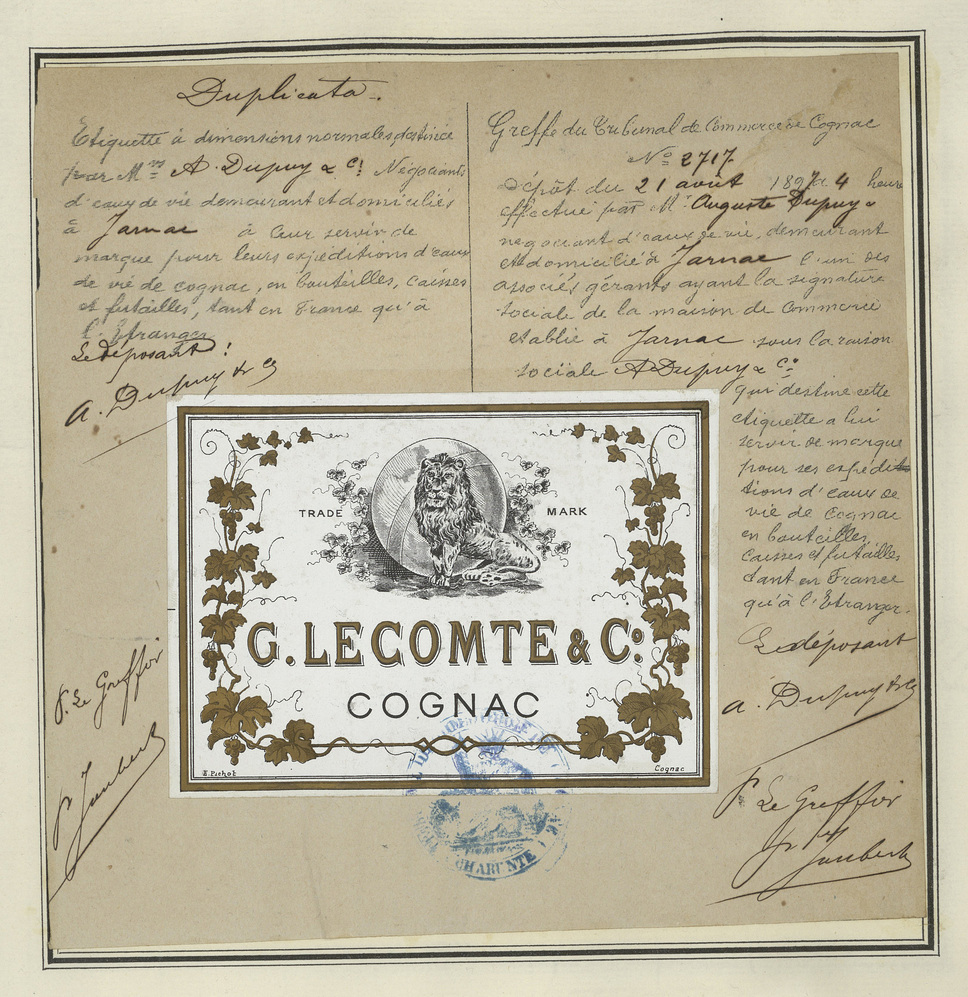 Duplicata.
Etiquette à dimensions normales destinée
par Mrs A. Dupuy & Cie Négociants
d'eaux de vie demeurant et domiciliés
à Jarnac à leur servir de
marque pour leurs expéditions d'eaux
de vie de cognac, en bouteilles, caisses
et futailles, tant en France qu'à
l'Etranger
Le déposant :
A. Dupuy & Co
Greffe du Tribunal de Commerce de Cognac
No 2717.
Dépôt du 21 août 1897 à 4 heure
effectué par M. Auguste Dupuy
négociant d'eaux de vie, demeurant
et domicilié à Jarnac l'un des
associés gérants ayant la signature
sociale de la maison de Commerce
etablie à Jarnac sous la raison
sociale A Dupuy & Co
qui destine cette
etiquette a lui
servir de marque
pour ses expédi
tions d'eaux de
vie de Cognac
en bouteilles,
caisses et futailles
tant en France
qu'à l'Etranger.
Le déposant
A. Dupuy & Co
TRADE MARK
G. LECOMTE & Co.
COGNAC
E. Pichot Cognac
P. Le Greffier
Joubert
P. Le Greffier
Joubert
CHARENTE